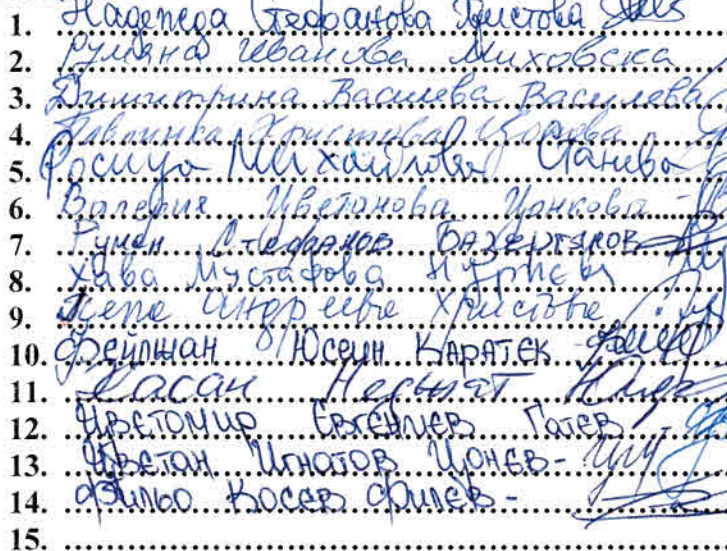 1. Надежда Стефанова Христова
2. Румяна Иванова Миховска
3. Димитрина Василева Василева
4. Павлинка Христова Цонова
5. Росица Михайлова Станева
6. Валерия Цветанова Цанкова -
7. Румен Стефанов
8. Хава Мустафова Нуриева
9. Пепа Андреева Христова
10. Фейлшан Юсеин Каратек -
11. Хасан Неджат
12. Цветомир Евгениев Гатев -
13. Цветан Игнатов Цонев -
14. Фильо Косев Филев -
15.